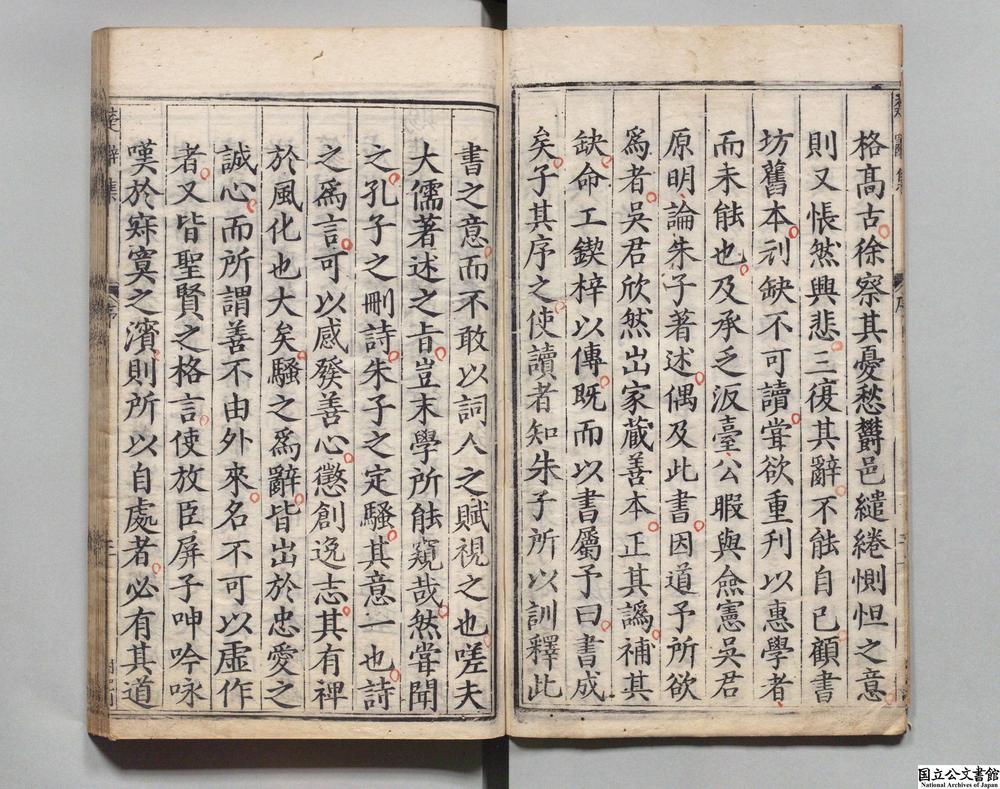 格高古徐察其憂愁欝邑繾綣惻怛之意
則又悵然興悲三復其辭不能自已顧書
坊舊本刓缺不可讀甞欲重刊以惠學者
而未能也及承乏汳臺公暇與僉憲吳君
原明論朱子著述偶及此書因道予所欲
爲者吳君欣然出家藏善本正其譌補其
缺命工鍥梓以傳既而以書屬予曰書成
矣子其序之使讀者知朱子所以訓釋此
書之意而不敢以詞人之賦視之也嗟夫
大儒著述之㫖豈末學所能窺哉然甞聞
之孔子之刪詩朱子之定騷其意一也詩
之爲言可以感發善心懲創逸志其有裨
於風化也大矣騷之爲辭皆出於忠愛之
誠心而所謂善不由外來名不可以虛作
者又皆聖賢之格言使放臣屏子呻吟咏
嘆於寂寞之濱則所以自處者必有其道
楚辭集
序
国立公文書館
National Archives of Japan